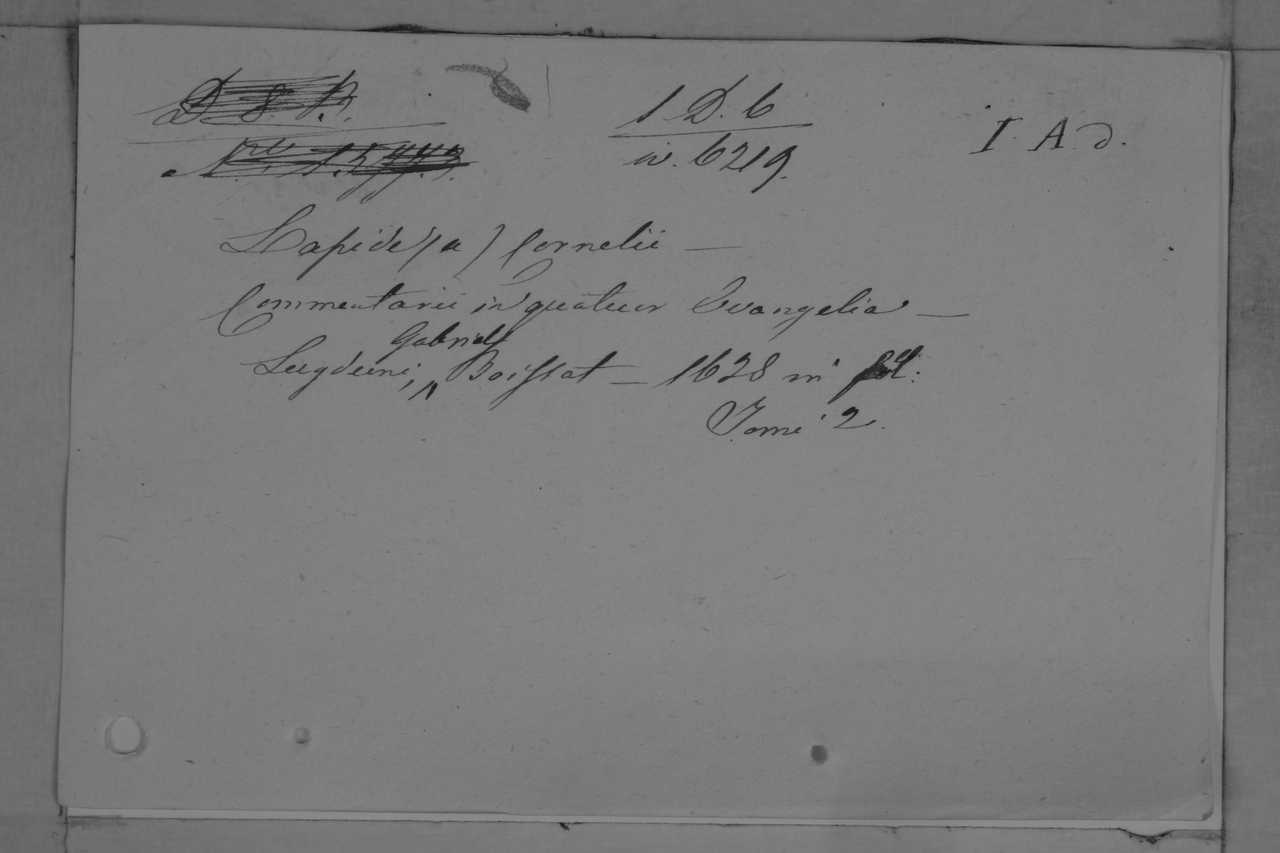 D. 8. B.
1 D. 6
I. A d.
in. 6219.
Lapide (a) Cornelii —
Commentarii in quatuor Evangelia —
Gabriel
Lugduni, Boissat — 1628 in fol:
Tomi 2.